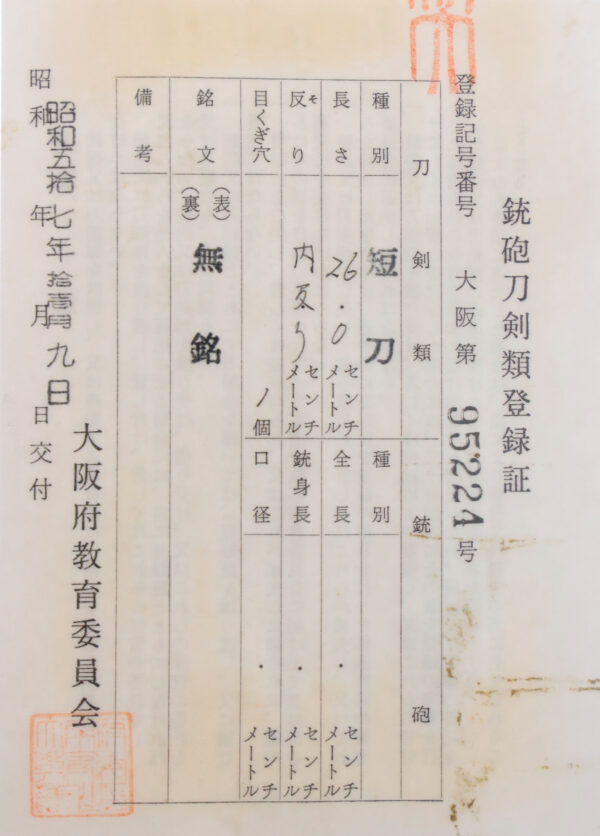 銃砲刀剣類登録証
登録記号番号 大阪第 95224 号
刀剣類 銃砲
種別 短刀 種別
長さ 26.0 センチメートル 全長 ・ センチメートル
反り ソ 内反り センチメートル 銃身長 ・ センチメートル
目くぎ穴 1個 口径 ・ センチメートル
銘文 (表) 無銘
(裏)
備考
大阪府教育委員会
昭和 年 月 日交付
昭和五拾七年拾壱月九日